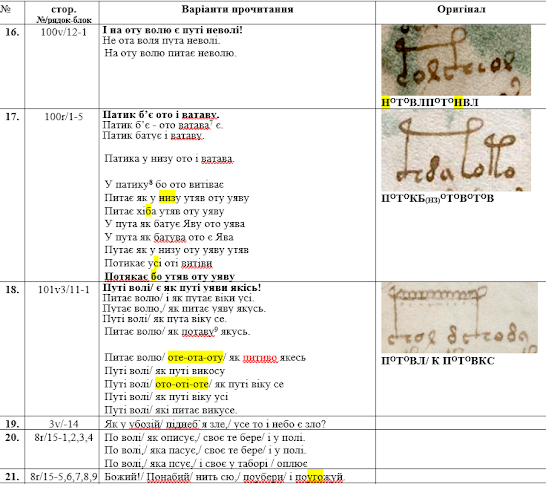 № стор. №/рядок-блок Варіанти прочитання Оригінал
16. 100v/12-1 І на оту волю є путі неволі!
Не ота воля пута неволі.
На оту волю питає неволю.
НОТОВЛПОТОНВЛ
17. 100r/1-5 Патик б’є ото і ватаву.
Патик б’є - ото ватава7 є.
Патик батує і ватаву.
Патика у низу ото і ватава.
У патику8 бо ото витіває
Питає як у низу утяв оту уяву
Питає хіба утяв оту уяву
У пута як батує Яву ото уява
У пута як батува ото є Ява
Путає як у низу оту уяву утяв
Потикає усі оті витіви
Потякає бо утяв оту уяву
ПОТОКБ(НЗ)ОТОВОТОВ
18. 101v3/11-1 Путі волі/ є як путі уяви якісь!
Питає волю/ і як путає віки усі.
Путає волю,/ як питає уяву якусь.
Путі волі/ як пута віку се.
Питає волю/ як потаву9 якусь.
Питає волю/ оте-ота-оту/ як питиво якесь
Путі волі/ як путі викосу
Путі волі/ ото-оті-оте/ як путі віку се
Путі волі/ як путі віку усі
Путі волі/ які питає викусе.
ПОТОВЛ/ К ПОТОВКС
19. 3v/-14 Як у убозій/ піднеб`я зле,/ усе то і небо є зло?
20. 8r/15-1,2,3,4 По волі/ як описує,/ своє те бере/ і у полі.
По волі,/ яка пасує,/ своє те бере/ і у полі.
По волі,/ яка псує,/ і своє у таборі / оплює
21. 8r/15-5,6,7,8,9 Божий!/ Понабий/ нить сю,/ поубери/ і поугожуй.